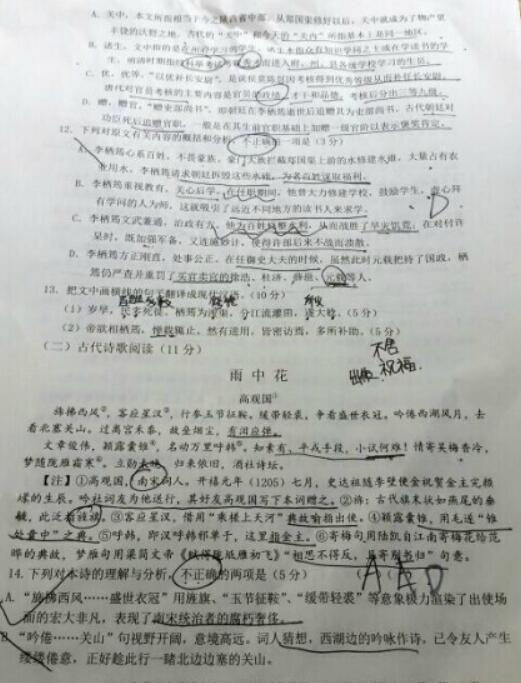 A. 关中，本文所指相当于今之陕西省中部。从郑国渠修好以后，关中就成为了物产里
丰饶的沃野之地。古代的“关中”和今天的“关内”所指基本上是同一地区。
B. 诸生，文中指的是在州府学习的学生。
明清时期指经科举考试考取秀才而进入府、州、县各级学校学习的生员。
C. 优，优等。“以优补长安尉”，是说侯莫陈
唐代对官员考核的主要内容是官员的政绩、才干和品德。考核后分出三等九级。
D. 赠，赠官。“赠吏部尚书”，即朝廷在李栖筠逝世后追赠其为吏部尚书。古代朝廷对
功臣死后追赠官职，一般是在其生前官职基础上加赠一级官阶以表示褒奖肯定。
12. 下列对原文有关内容的概括和分析，不正确的一项是（3分）
A. 李栖筠心系百姓，不畏豪族。豪门大族拦截郑国渠上游的水修建水碓，大量占有农
业用水，李栖筠请求朝廷拆毁这些水碓，为老百姓谋取福利。
B. 李栖筠重视教育，关心后学。在任职期间，他曾大力修建学校，鼓励学生，虚心拜
有学问的人为师，这就吸引了远近不同地方的读书人来求学。
C. 李栖筠文武兼通，治政有方。他为百姓修整水利，从而战胜了旱灾饥荒；在对付许
杲时，既加强军备，又连施妙计，使得许部后来不战而溃散。
D. 李栖筠方正刚直，处事公正。在任御史大夫的时候，虽然此时元载把持了国政，栖
筠仍严查并重罚了买官卖官的徐浩、杜济、薛邕、元载等人。
13. 把文中画横线的句子翻译成现代汉语。（10分）
（1）岁旱，民多死徙，栖筠为浚渠，分江流灌田，遂大稔。（5分）
（2）帝欲相栖筠，惮载辄止。然有进用，皆密访焉，多所补助。（5分）
（二）古代诗歌阅读（11分）
不居
出使 祝福
雨中花
高观国①
旆拂西风②，客应星汉③，行参玉节征鞍。缓带轻裘，争看盛世衣冠。吟倦西湖风月，去
看北塞关山。过离宫禾黍，故垒烟尘，有泪应弹。
文章俊伟，颖露囊锥④，名动万里呼韩⑤。知素有、平戎手段，小试何难！情寄吴梅香冷，
梦随陇雁霜寒⑥。立勋未晚，归来依旧，酒社诗坛。
【注】①高观国，南宋词人。开禧元年（1205）七月，史达祖随李璧使金祝贺金主完颜
璟的生辰。吟社词友为他送行，其好友高观国写下本词赠之。②旆：古代镶末状如燕尾的垂
旒，此泛指旌旗。③客应星汉，借用“乘槎上天河”典故喻指出使。④颖露囊锥，用毛遂“锥
处囊中”之典。⑤呼韩，即汉呼韩邪单于，这里指金主。⑥寄梅句用陆凯自江南寄梅花给范
晔的典故，梦雁句用梁简文帝《赋得陇坻雁初飞》“相思不得反，且寄别书归”句意。
14. 下列对本诗的理解与分析，不正确的两项是（5分）
A. “旆拂西风……盛世衣冠”用旌旗、“玉节征鞍”、“缓带轻裘”等意象极力渲染了出使场
面的宏大非凡，表现了南宋统治者的腐朽奢侈。
B. “吟倦……关山”句视野开阔，意境高远。词人猜想，西湖边的吟咏作诗，已令友人产生
缕缕倦意，正好趁此行一睹北边边塞的关山。